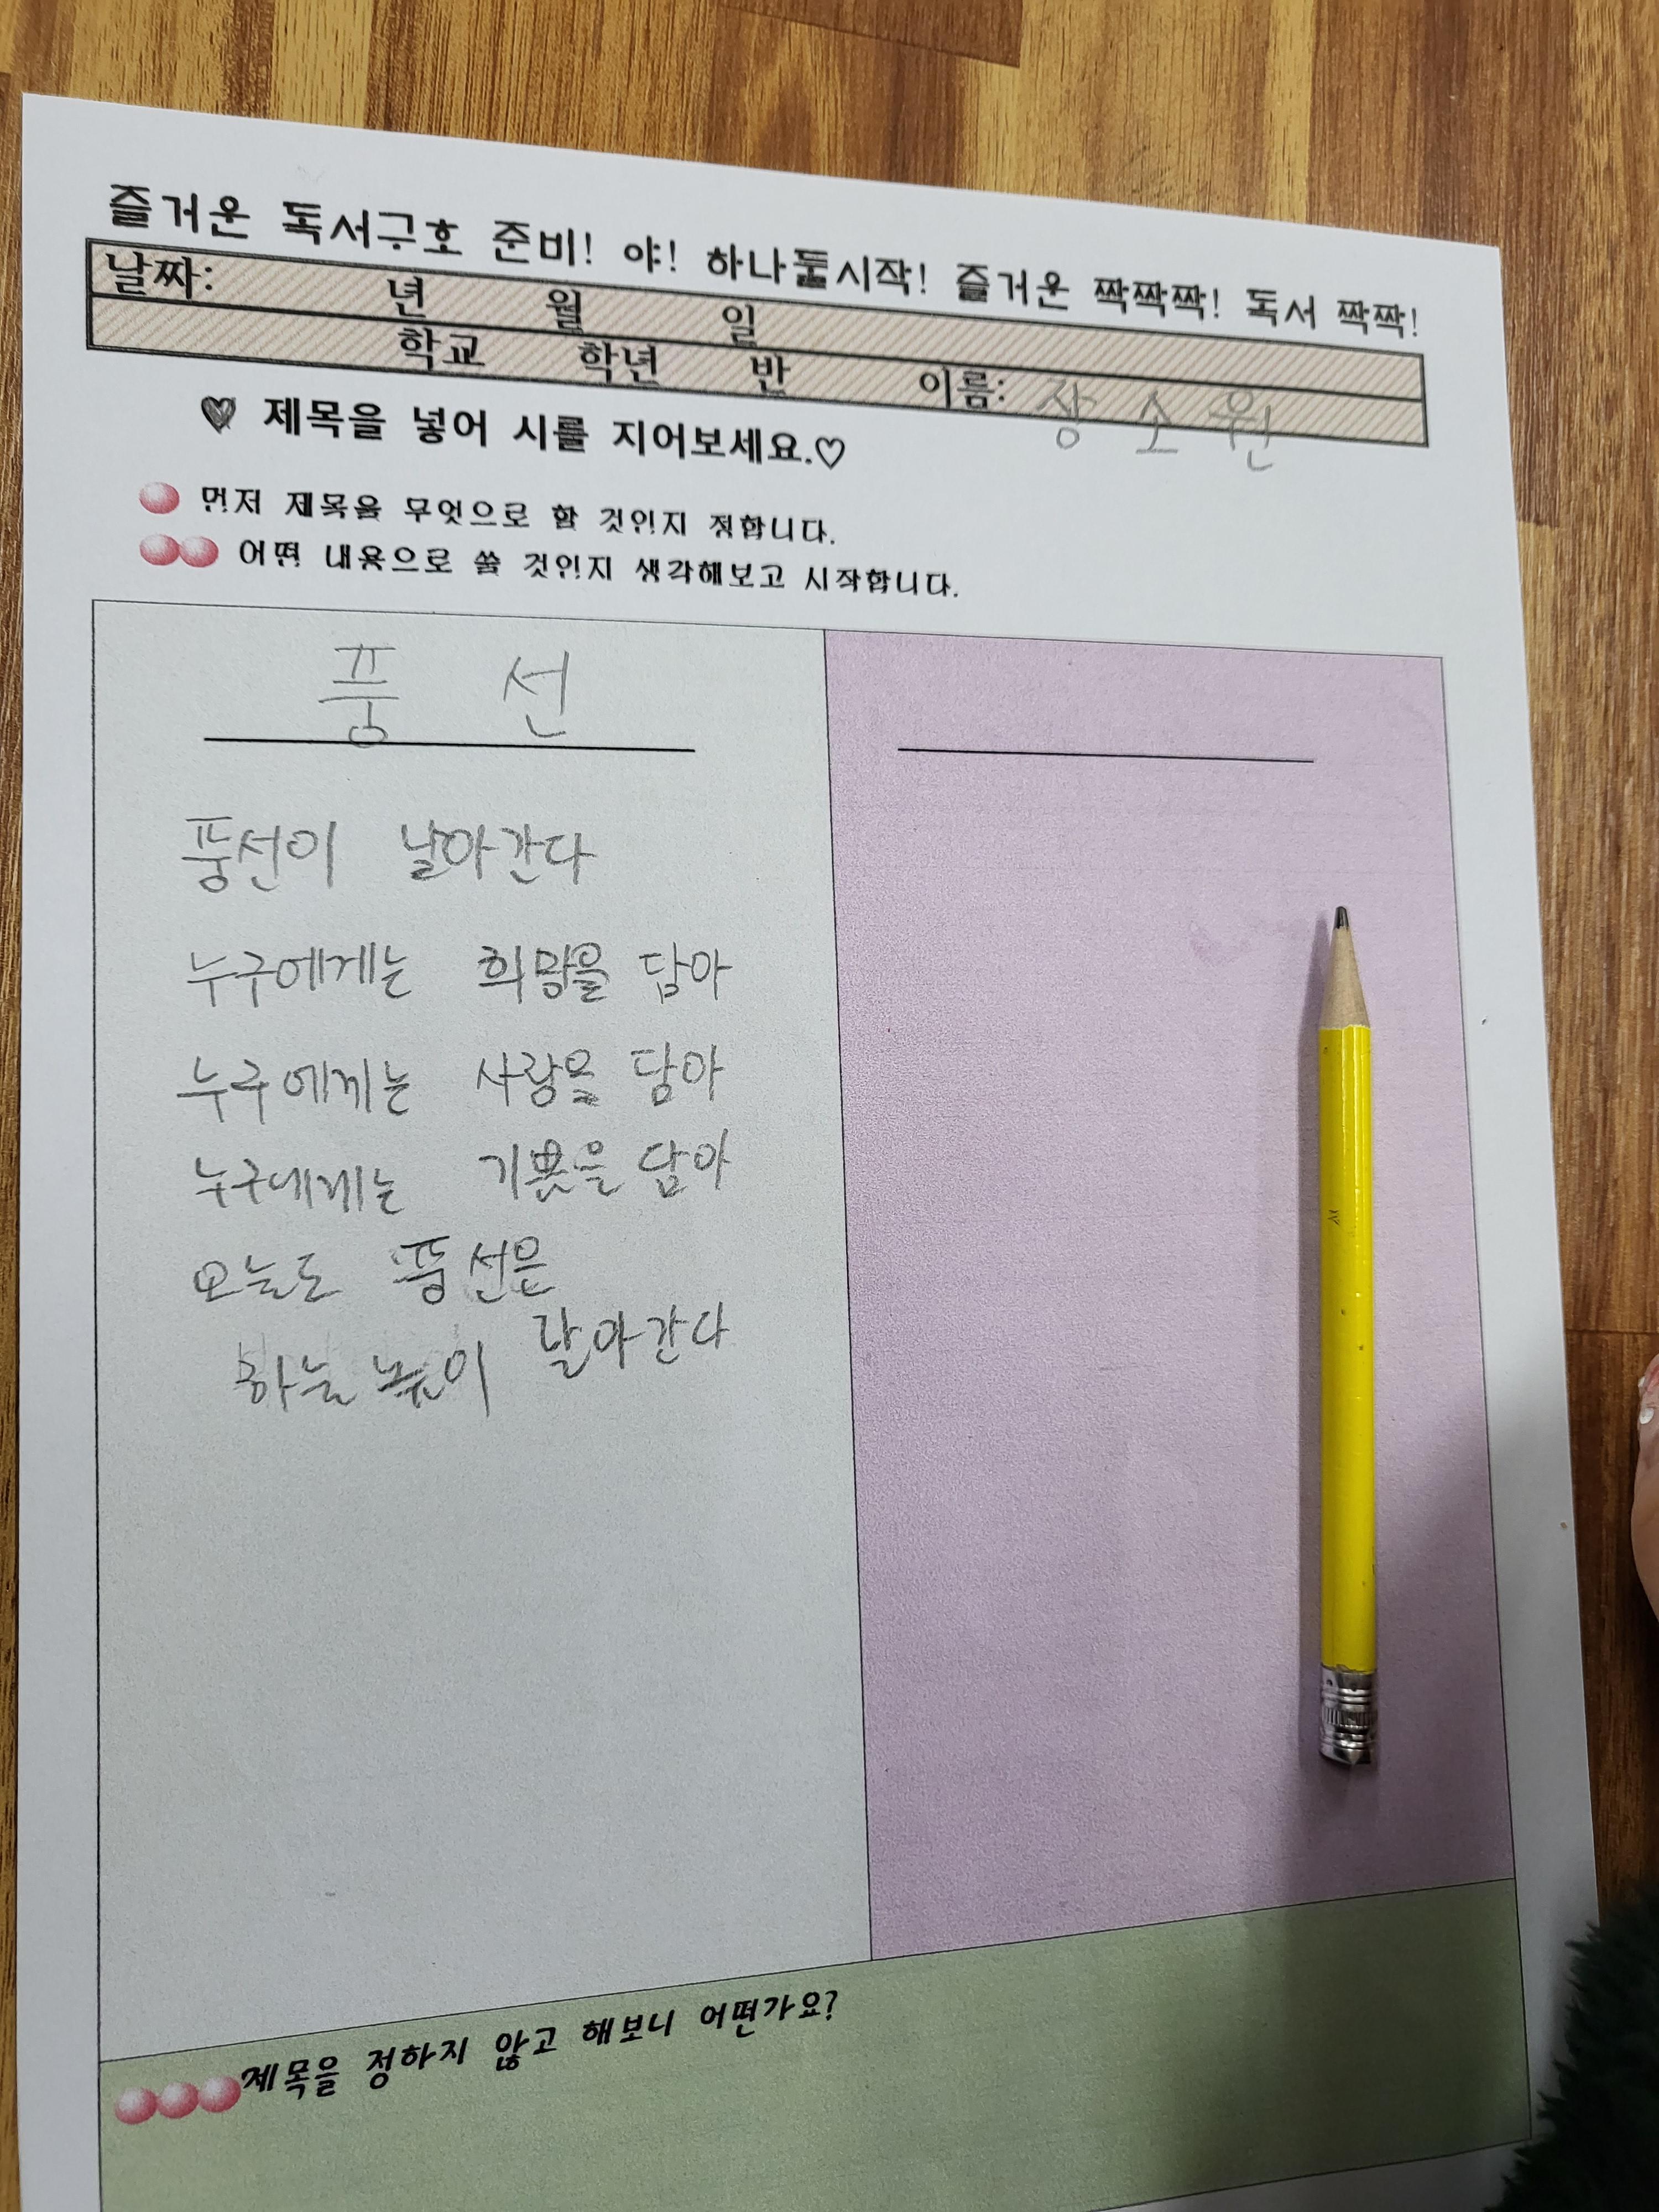 즐거운 독서구호 준비! 야! 하나둘시작! 즐거운 짝짝짝! 독서 짝짝!
날짜: 년 월 일
학교 학년 반 이름: 장소원
♥ 제목을 넣어 시를 지어보세요.♡
먼저 제목을 무엇으로 할 것인지 정합니다.
어떤 내용으로 쓸 것인지 생각해보고 시작합니다.
풍 선
풍선이 날아간다
누구에게는 희망을 담아
누구에게는 사랑을 담아
누구에게는 기쁨을 담아
오늘도 풍선은
하늘 높이 날아간다
제목을 정하지 않고 해보니 어떤가요?